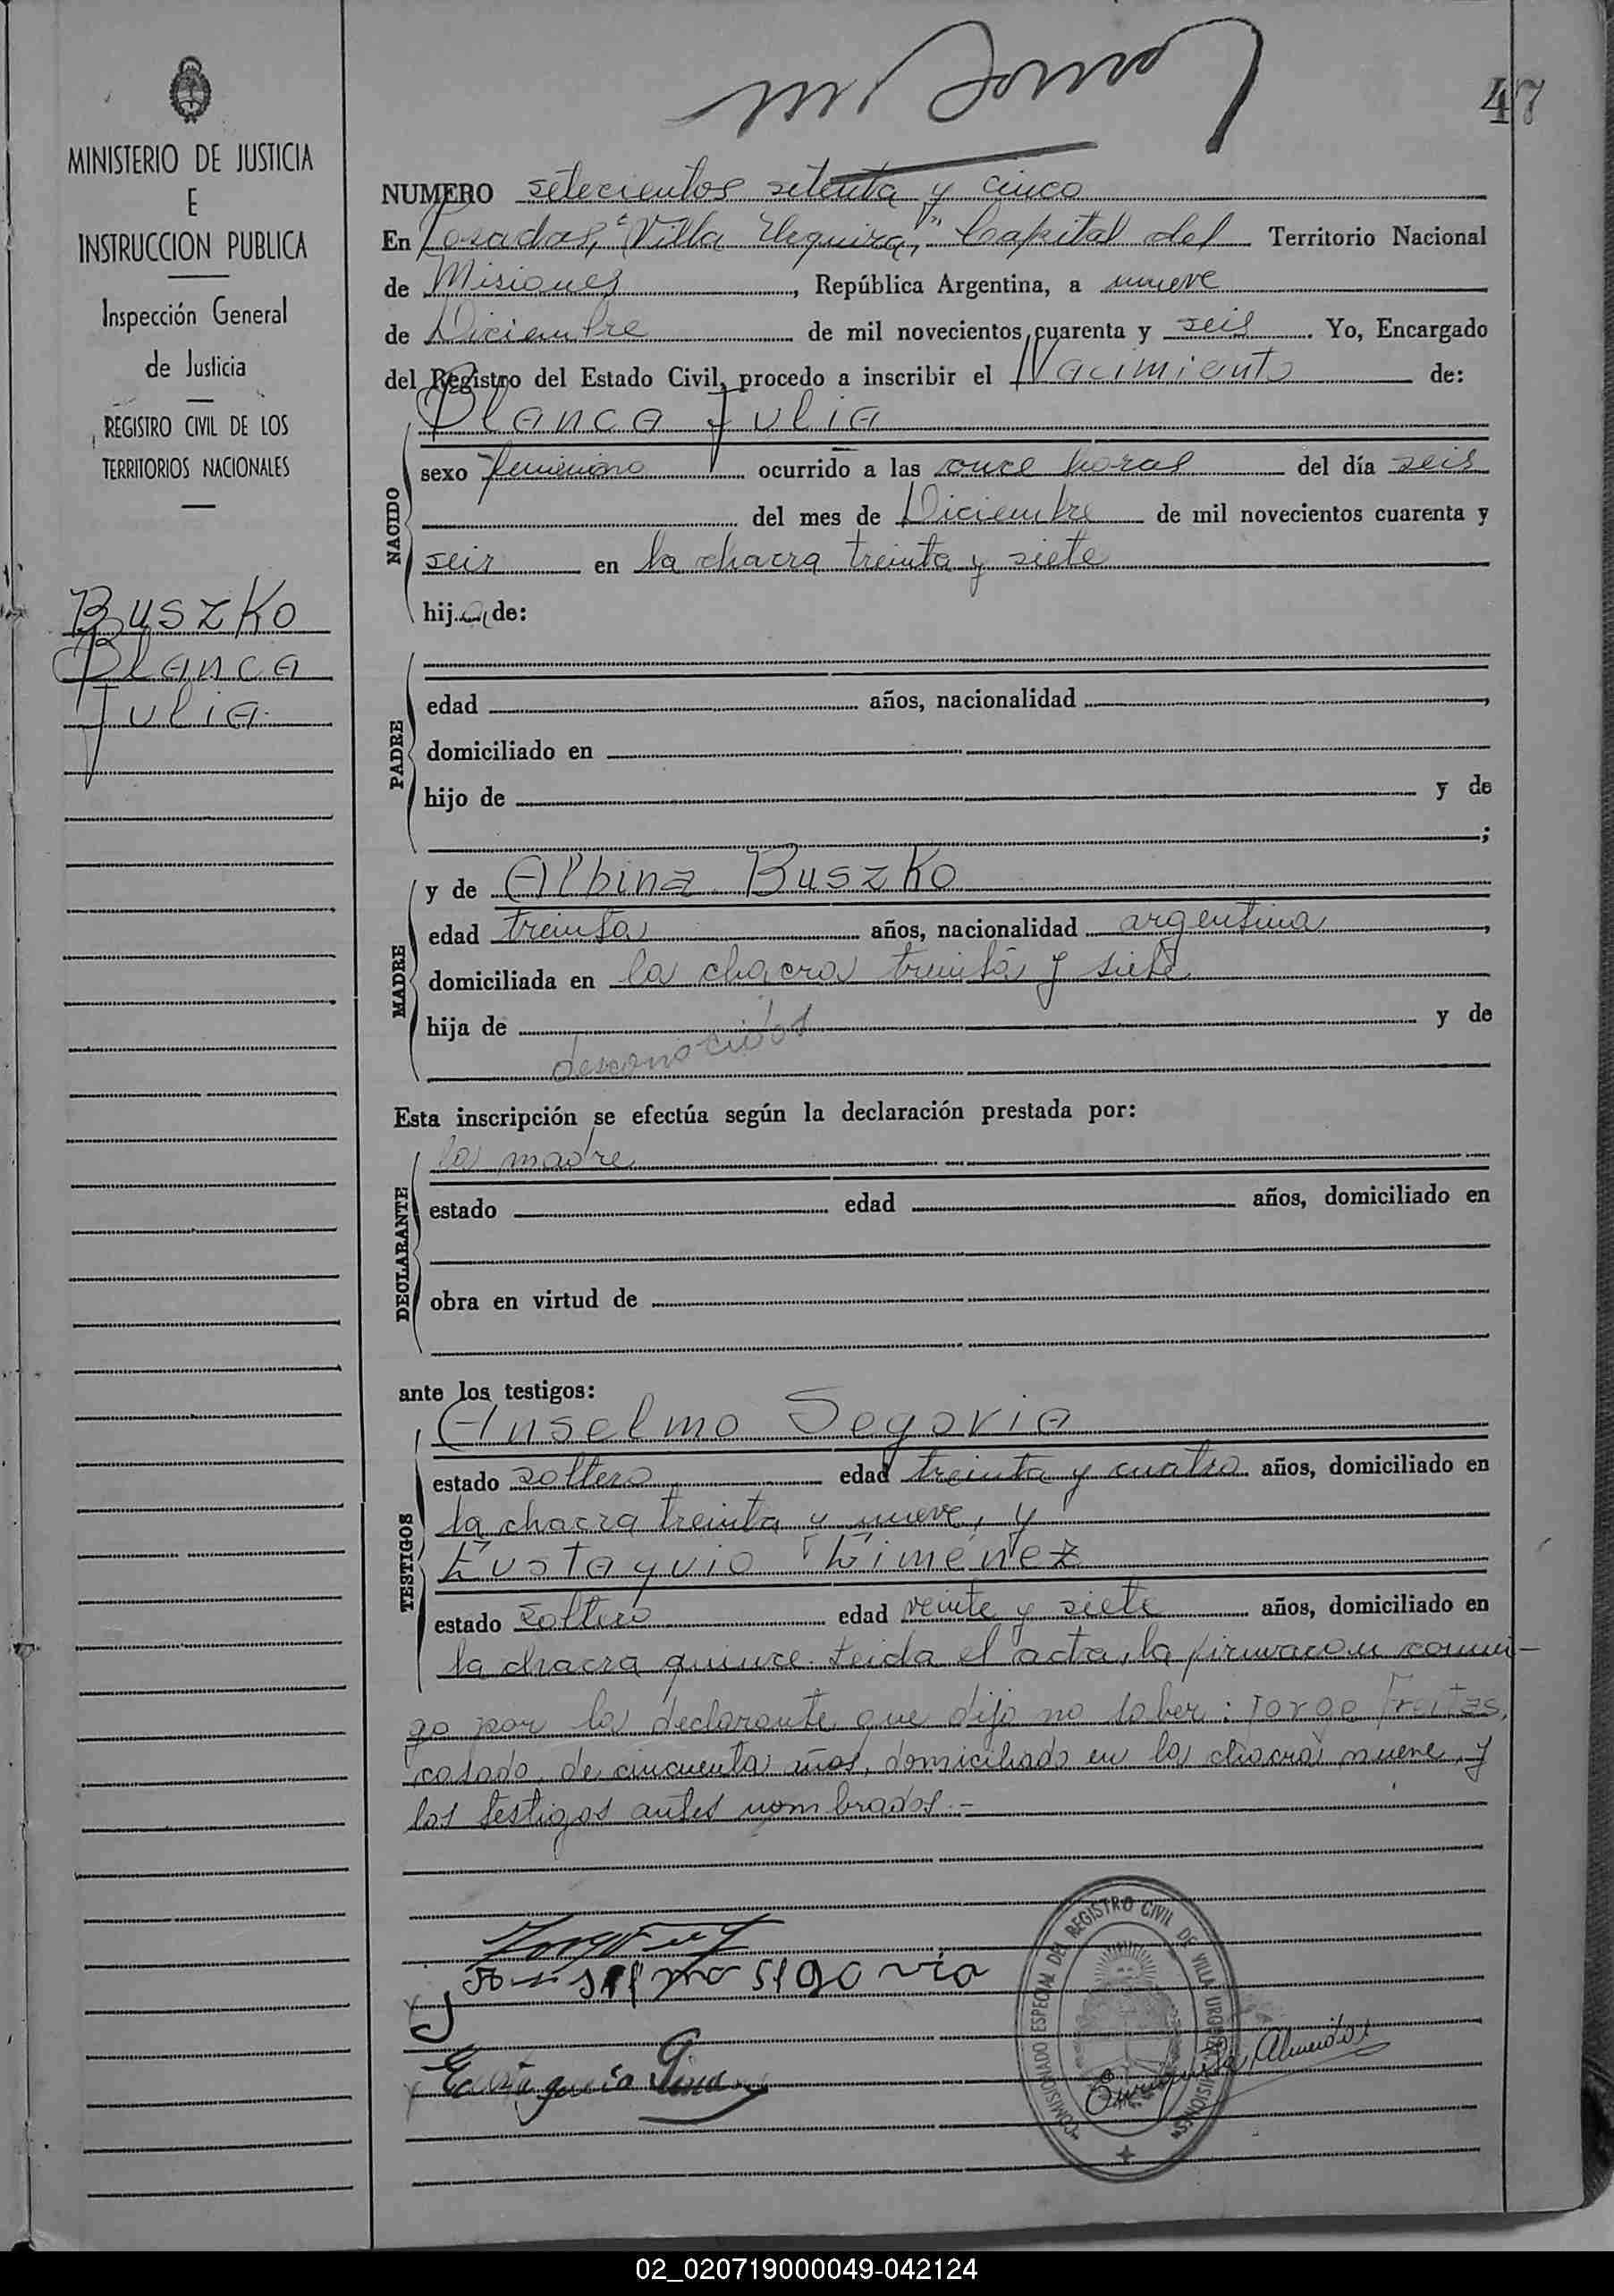 47
MINISTERIO DE JUSTICIA
E
INSTRUCCION PUBLICA
Inspección General
de Justicia
REGISTRO CIVIL DE LOS
TERRITORIOS NACIONALES
Buszko
Blanca
Julia
NUMERO setecientos setenta y cinco
En Posadas, "Villa Urquiza," Capital del Territorio Nacional
de Misiones, República Argentina, a nueve
de Diciembre de mil novecientos cuarenta y seis. Yo, Encargado
del Registro del Estado Civil, procedo a inscribir el Nacimiento de:
Blanca Julia
NACIDO
sexo femenino ocurrido a las once horas del día seis
del mes de Diciembre de mil novecientos cuarenta y
seis en la chacra treinta y siete
hija de:
PADRE
edad años, nacionalidad ,
domiciliado en
hijo de y de
;
MADRE
y de Albina Buszko
edad treinta años, nacionalidad argentina,
domiciliada en la chacra treinta y siete
hija de y de
desconocidos
Esta inscripción se efectúa según la declaración prestada por:
DECLARANTE
la madre
estado edad años, domiciliado en
obra en virtud de
ante los testigos:
TESTIGOS
Anselmo Segovia
estado soltero edad treinta y cuatro años, domiciliado en
la chacra treinta y nueve, y
Eustaquio Gimenez
estado soltero edad veinte y siete años, domiciliado en
la chacra quince. Leida el acta, la firmaron conmi-
go por la declarante que dijo no saber: Jorge Freitas,
casado, de cincuenta años, domiciliado en la chacra nueve, y
los testigos antes nombrados.-
Anselmo segovia
COMISIONADO ESPECIAL DEL REGISTRO CIVIL DE VILLA URQUIZA (MISIONES)
02_020719000049-042124